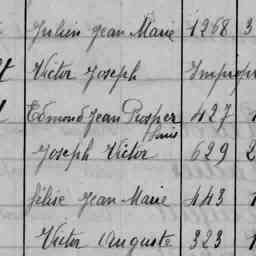 Julien Jean Marie 1268 3
Victor Joseph Impropr
Edmond Jean Prosper 427 1
Joseph Victor 629 2
félise Jean Marie 443 1
Victor Auguste 323 1